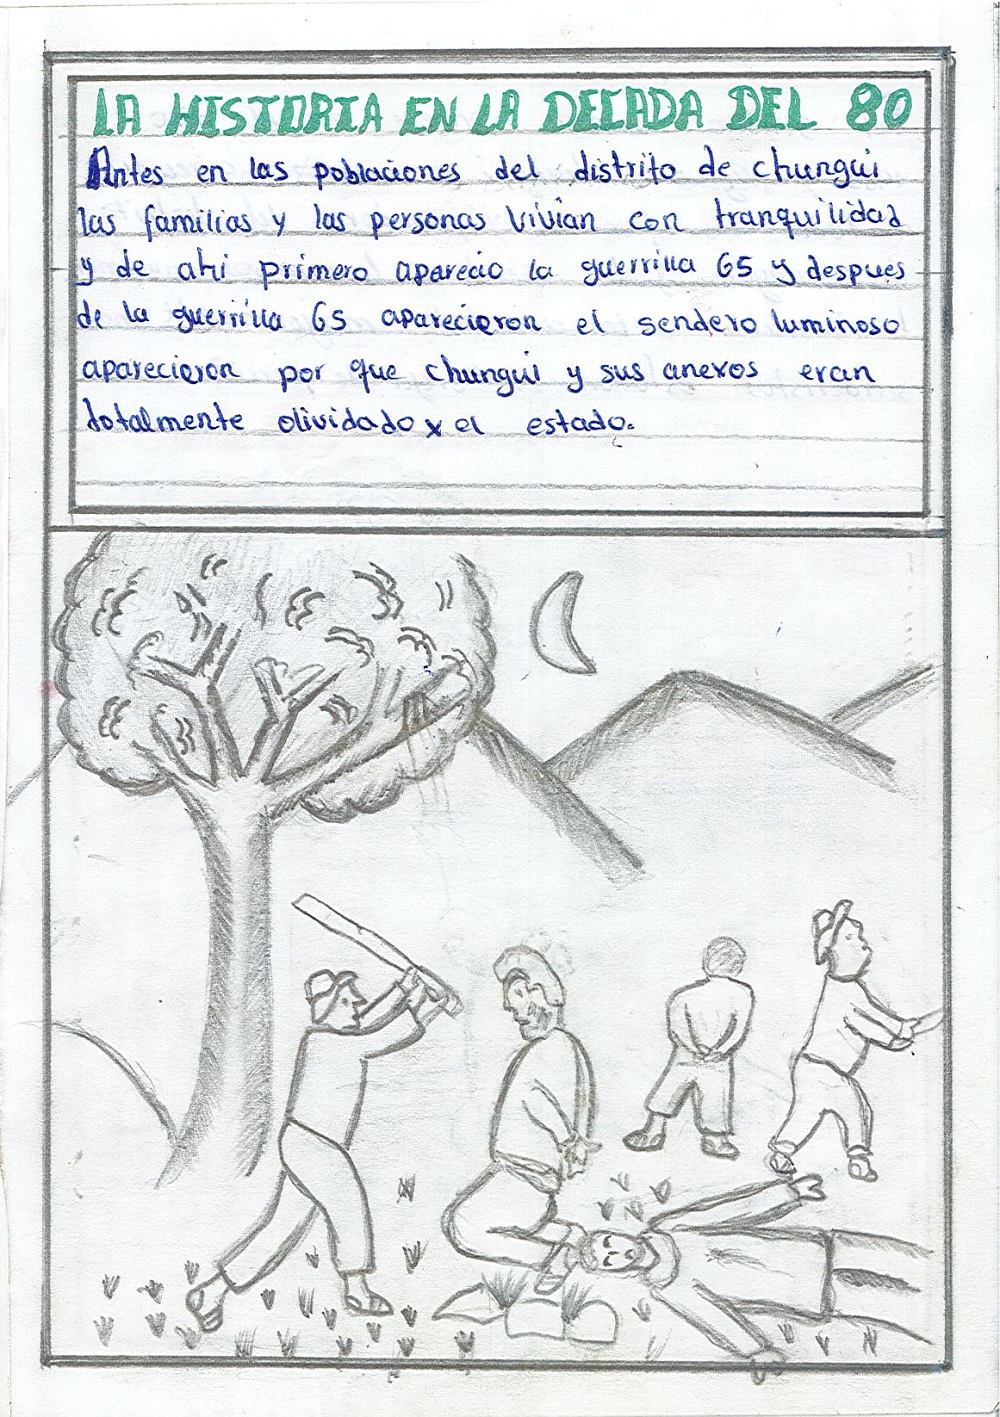 LA HISTORIA EN LA DECADA DEL 80
Antes en las poblaciones del distrito de chungui
las familias y las personas vivian con tranquilidad
y de ahi primero aparecio la guerrilla 65 y despues
de la guerrilla 65 aparecieron el sendero luminoso
aparecieron por que chungui y sus anexos eran
totalmente olividado x el estado.